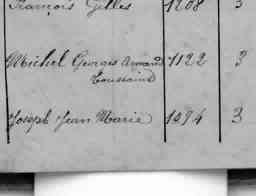 François Gilles 1208 3
Michel Georges Armand 1122 3
Toussaint
Joseph Jean Marie 1094 3